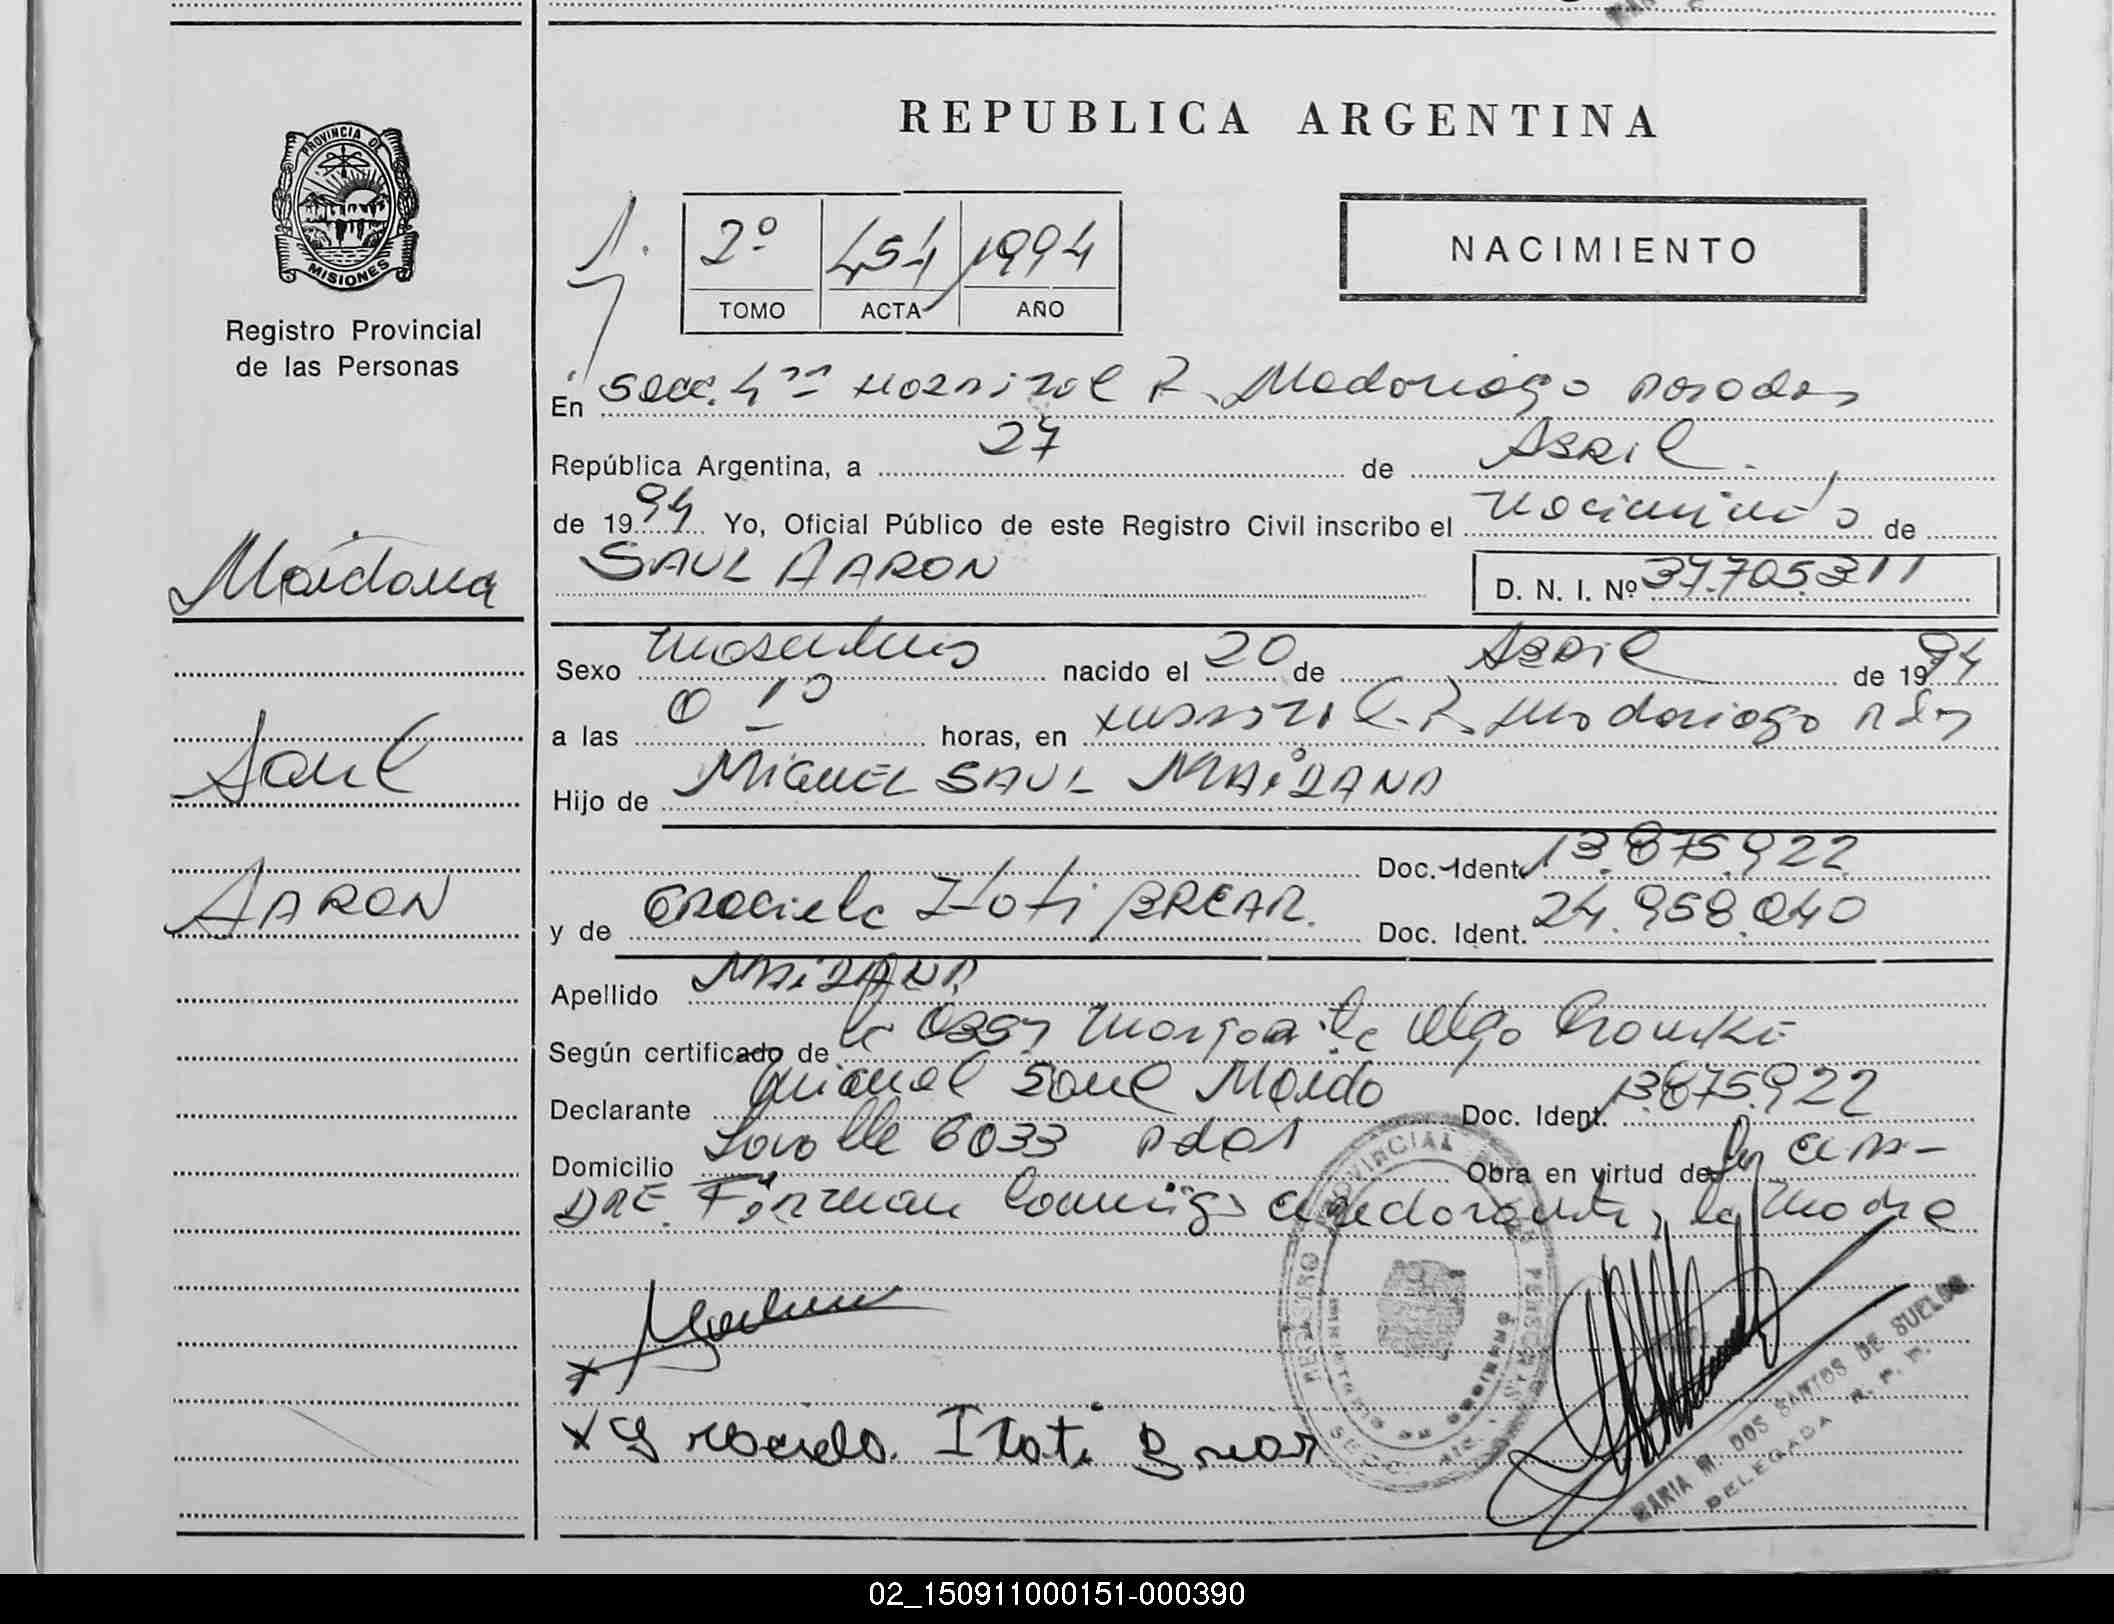 REPUBLICA ARGENTINA
PROVINCIA DE
MISIONES
Registro Provincial
de las Personas
2º 454 1994
TOMO ACTA AÑO
NACIMIENTO
En Secc. 4ta Hospital R. Madariaga Posadas
República Argentina, a 27 de Abril
de 1994 Yo, Oficial Público de este Registro Civil inscribo el nacimiento de
SAUL AARON D. N. I. Nº 37.705.311
Maidana
Saul
AARON
Sexo masculino nacido el 20 de Abril de 1994
a las 0 10 horas, en Hospital R. Madariaga Pdas
Hijo de MIGUEL SAUL MAIDANA
Doc. Ident. 13.875.922
y de Graciela Itati BREAR. Doc. Ident. 24.958.040
Apellido MAIDANA
Según certificado de la Obst. Margarita Olga
Declarante Miguel Saul Maida Doc. Ident. 13.875.922
Domicilio Lavalle 6033 Pdas Obra en virtud de
DRE. Firman conmigo el declarante y la madre
x
x Graciela Itati Brear
REGISTRO PROVINCIAL DE LAS PERSONAS
MARIA M. DOS SANTOS DE SUELDO
DELEGADA R. P. P.
02_150911000151-000390